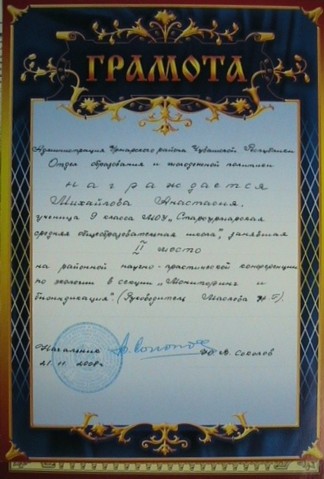 ГРАМОТА
Администрация Урмарского района Чувашской Республики
Отдел образования и молодежной политики
награждается
Михайлова Анастасия,
ученица 9 класса МОУ "Староурмарская
средняя общеобразовательная школа", занявшая
II место
на районной научно-практической конференции
по экологии в секции "Мониторинг и
биоиндикация" (Руководитель Маслова
Начальник Соколов
21.11.2008г.